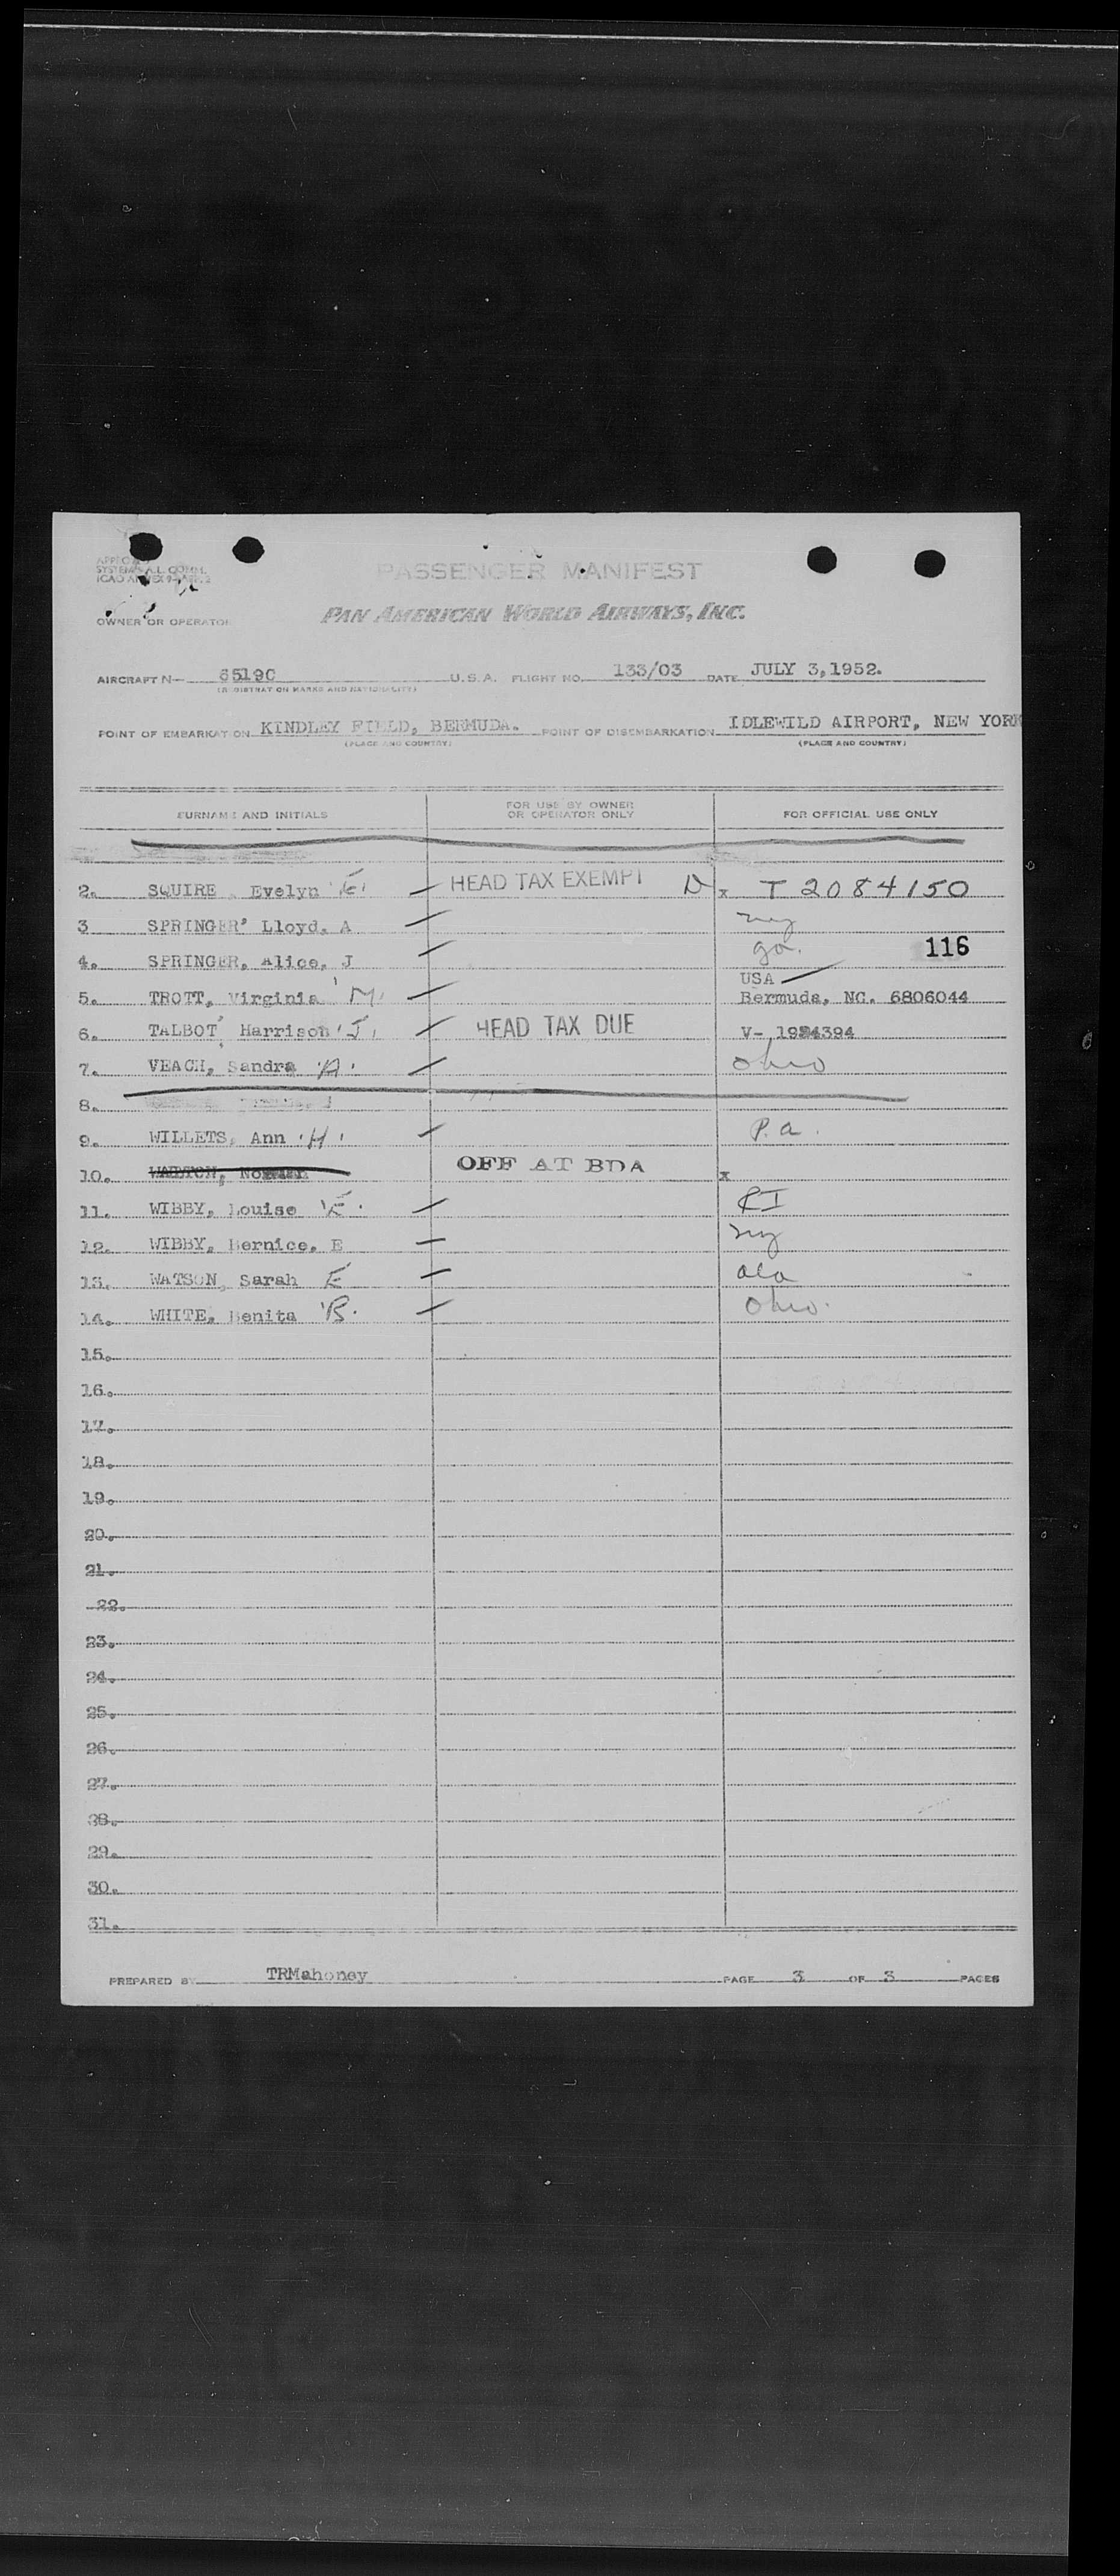 PASSENGER MANIFEST
ICAO ANNEX 9-APP. 2
OWNER OR OPERATOR PAN AMERICAN WORLD AIRWAYS, INC.
AIRCRAFT N- 65190 U.S.A. FLIGHT NO. 133/03 DATE JULY 3,1952.
(REGISTRATION MARKS AND NATIONALITY)
POINT OF EMBARKATION KINDLEY FIELD, BERMUDA. POINT OF DISEMBARKATION IDLEWILD AIRPORT, NEW YORK
(PLACE AND COUNTRY) (PLACE AND COUNTRY)
SURNAME AND INITIALS FOR USE BY OWNER OR OPERATOR ONLY FOR OFFICIAL USE ONLY
2. SQUIRE, Evelyn E. HEAD TAX EXEMPT D x T 2084150
3 SPRINGER, Lloyd, A ny
4. SPRINGER, Alice, J ga. 116
USA
5. TROTT, Virginia M Bermuda, NC. 6806044
6. TALBOT, Harrison J. HEAD TAX DUE V- 1924394
7. VEACH, Sandra A. Ohio
8.
9. WILLETS, Ann H. P.a.
10. OFF AT BDA x
11. WIBBY, Louise E. RI
12. WIBBY, Bernice, E ny
13. WATSON, Sarah E ala
14. WHITE, Benita B. Ohio.
15.
16.
17.
18.
19.
20.
21.
22.
23.
24.
25.
26.
27.
28.
29.
30.
31.
PREPARED BY TRMahoney PAGE 3 OF 3 PAGES